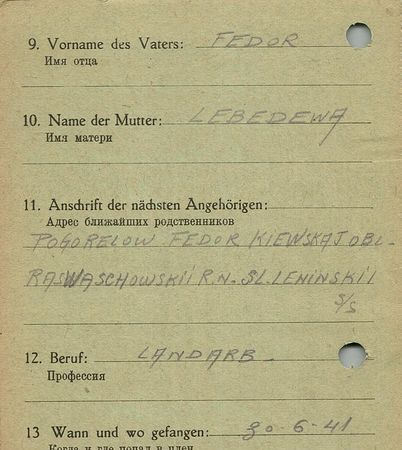 9. Vorname des Vaters: FEDOR
Имя отца
10. Name der Mutter: LEBEDEWA
Имя матери
11. Anschrift der nächsten Angehörigen:
Адрес ближайших родственников
POGORELOW FEDOR KIEWSKAJ OBL-
RASWASCHOWSKII R.N. SL. LENINSKII
S/S
12. Beruf: LANDARB-
Профессия
13 Wann und wo gefangen: 30-6-41
Когда и где попал в плен